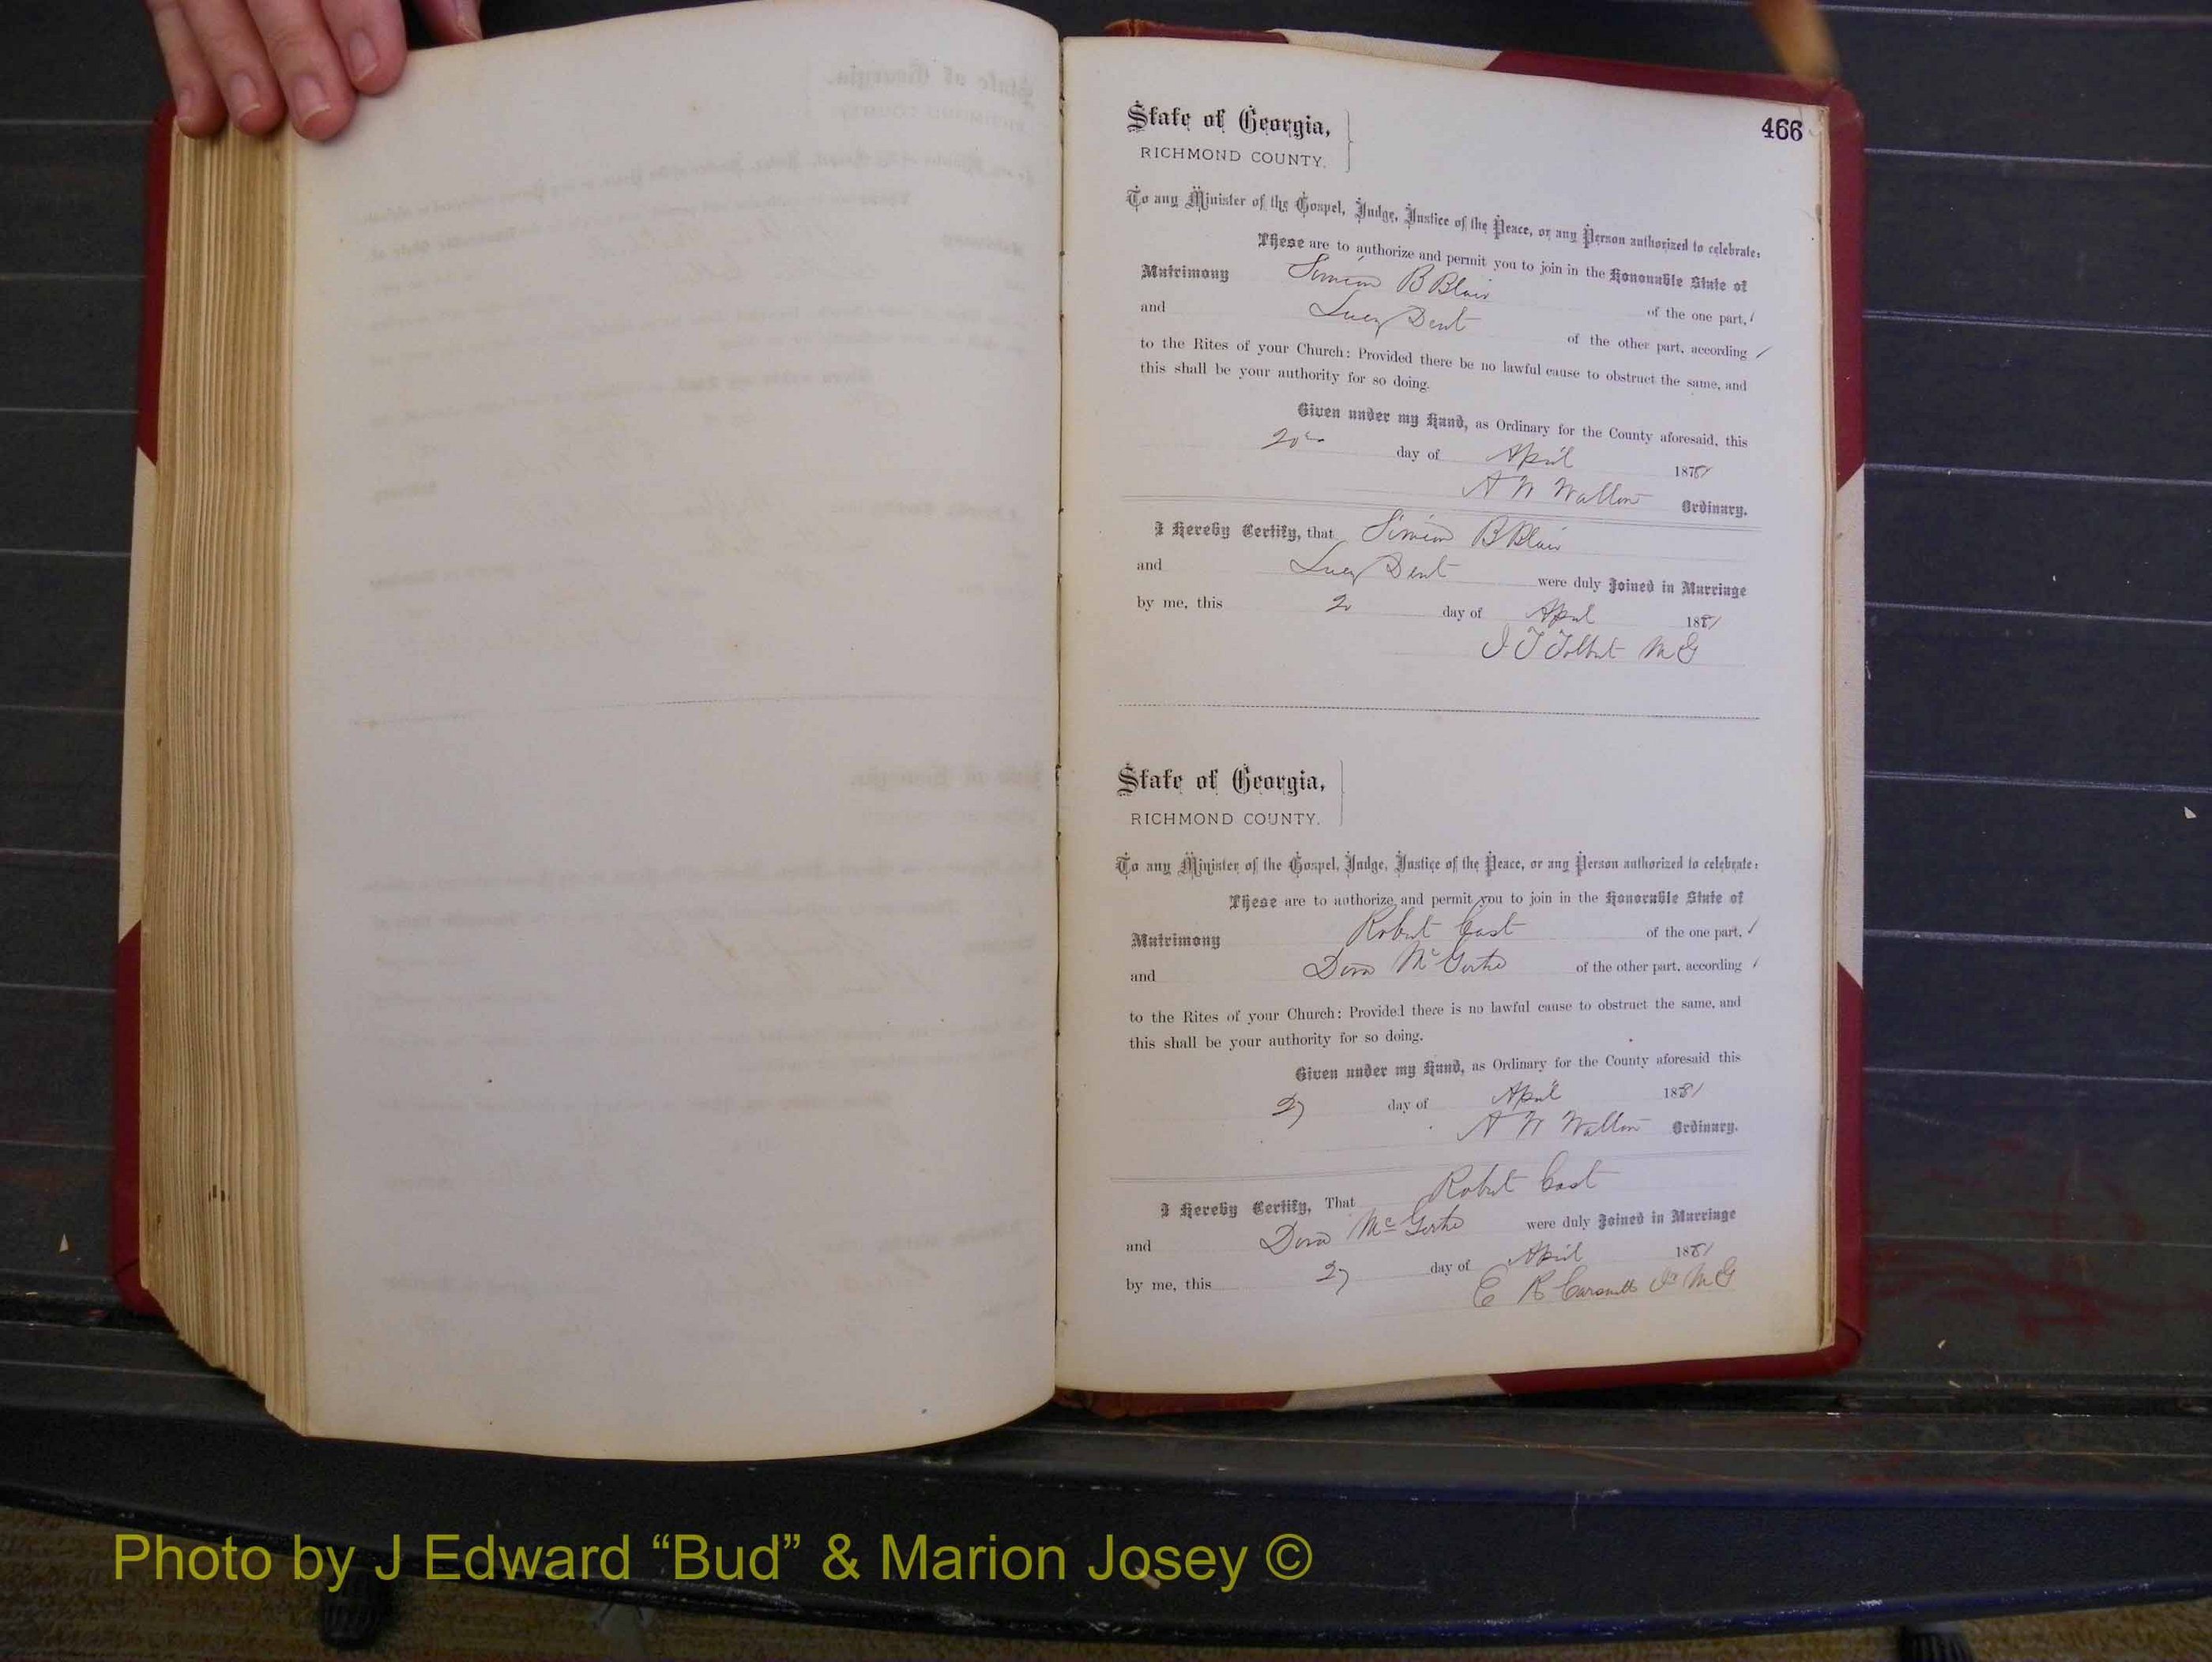 466
State of Georgia,
RICHMOND COUNTY.
To any Minister of the Gospel, Judge, Justice of the Peace, or any Person authorized to celebrate:
These are to authorize and permit you to join in the Honorable State of
Matrimony Simeon B Blair of the one part,
and Lucy Dent of the other part, according
to the Rites of your Church: Provided there be no lawful cause to obstruct the same, and
this shall be your authority for so doing.
Given under my Hand, as Ordinary for the County aforesaid, this
20 day of April 1881
A W Walton Ordinary.
I Hereby Certify, that Simeon B Blair
and Lucy Dent were duly Joined in Marriage
by me, this 20 day of April 1881
J T Tolbert M G
State of Georgia,
RICHMOND COUNTY.
To any Minister of the Gospel, Judge, Justice of the Peace, or any Person authorized to celebrate:
These are to authorize and permit you to join in the Honorable State of
Matrimony Robert Cast of the one part,
and Dora of the other part, according
to the Rites of your Church: Provided there is no lawful cause to obstruct the same, and
this shall be your authority for so doing.
Given under my Hand, as Ordinary for the County aforesaid this
27 day of April 1881
A W Walton Ordinary.
I Hereby Certify, That Robert Cast
and Dora were duly Joined in Marriage
by me, this 27 day of April 1881
E R Carswell Jr M G
Photo by J Edward “Bud” & Marion Josey ©